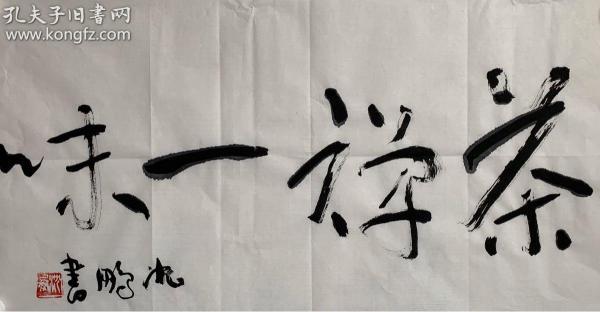 孔夫子旧书网
www.kongfz.com
茶禅一味
鹏书